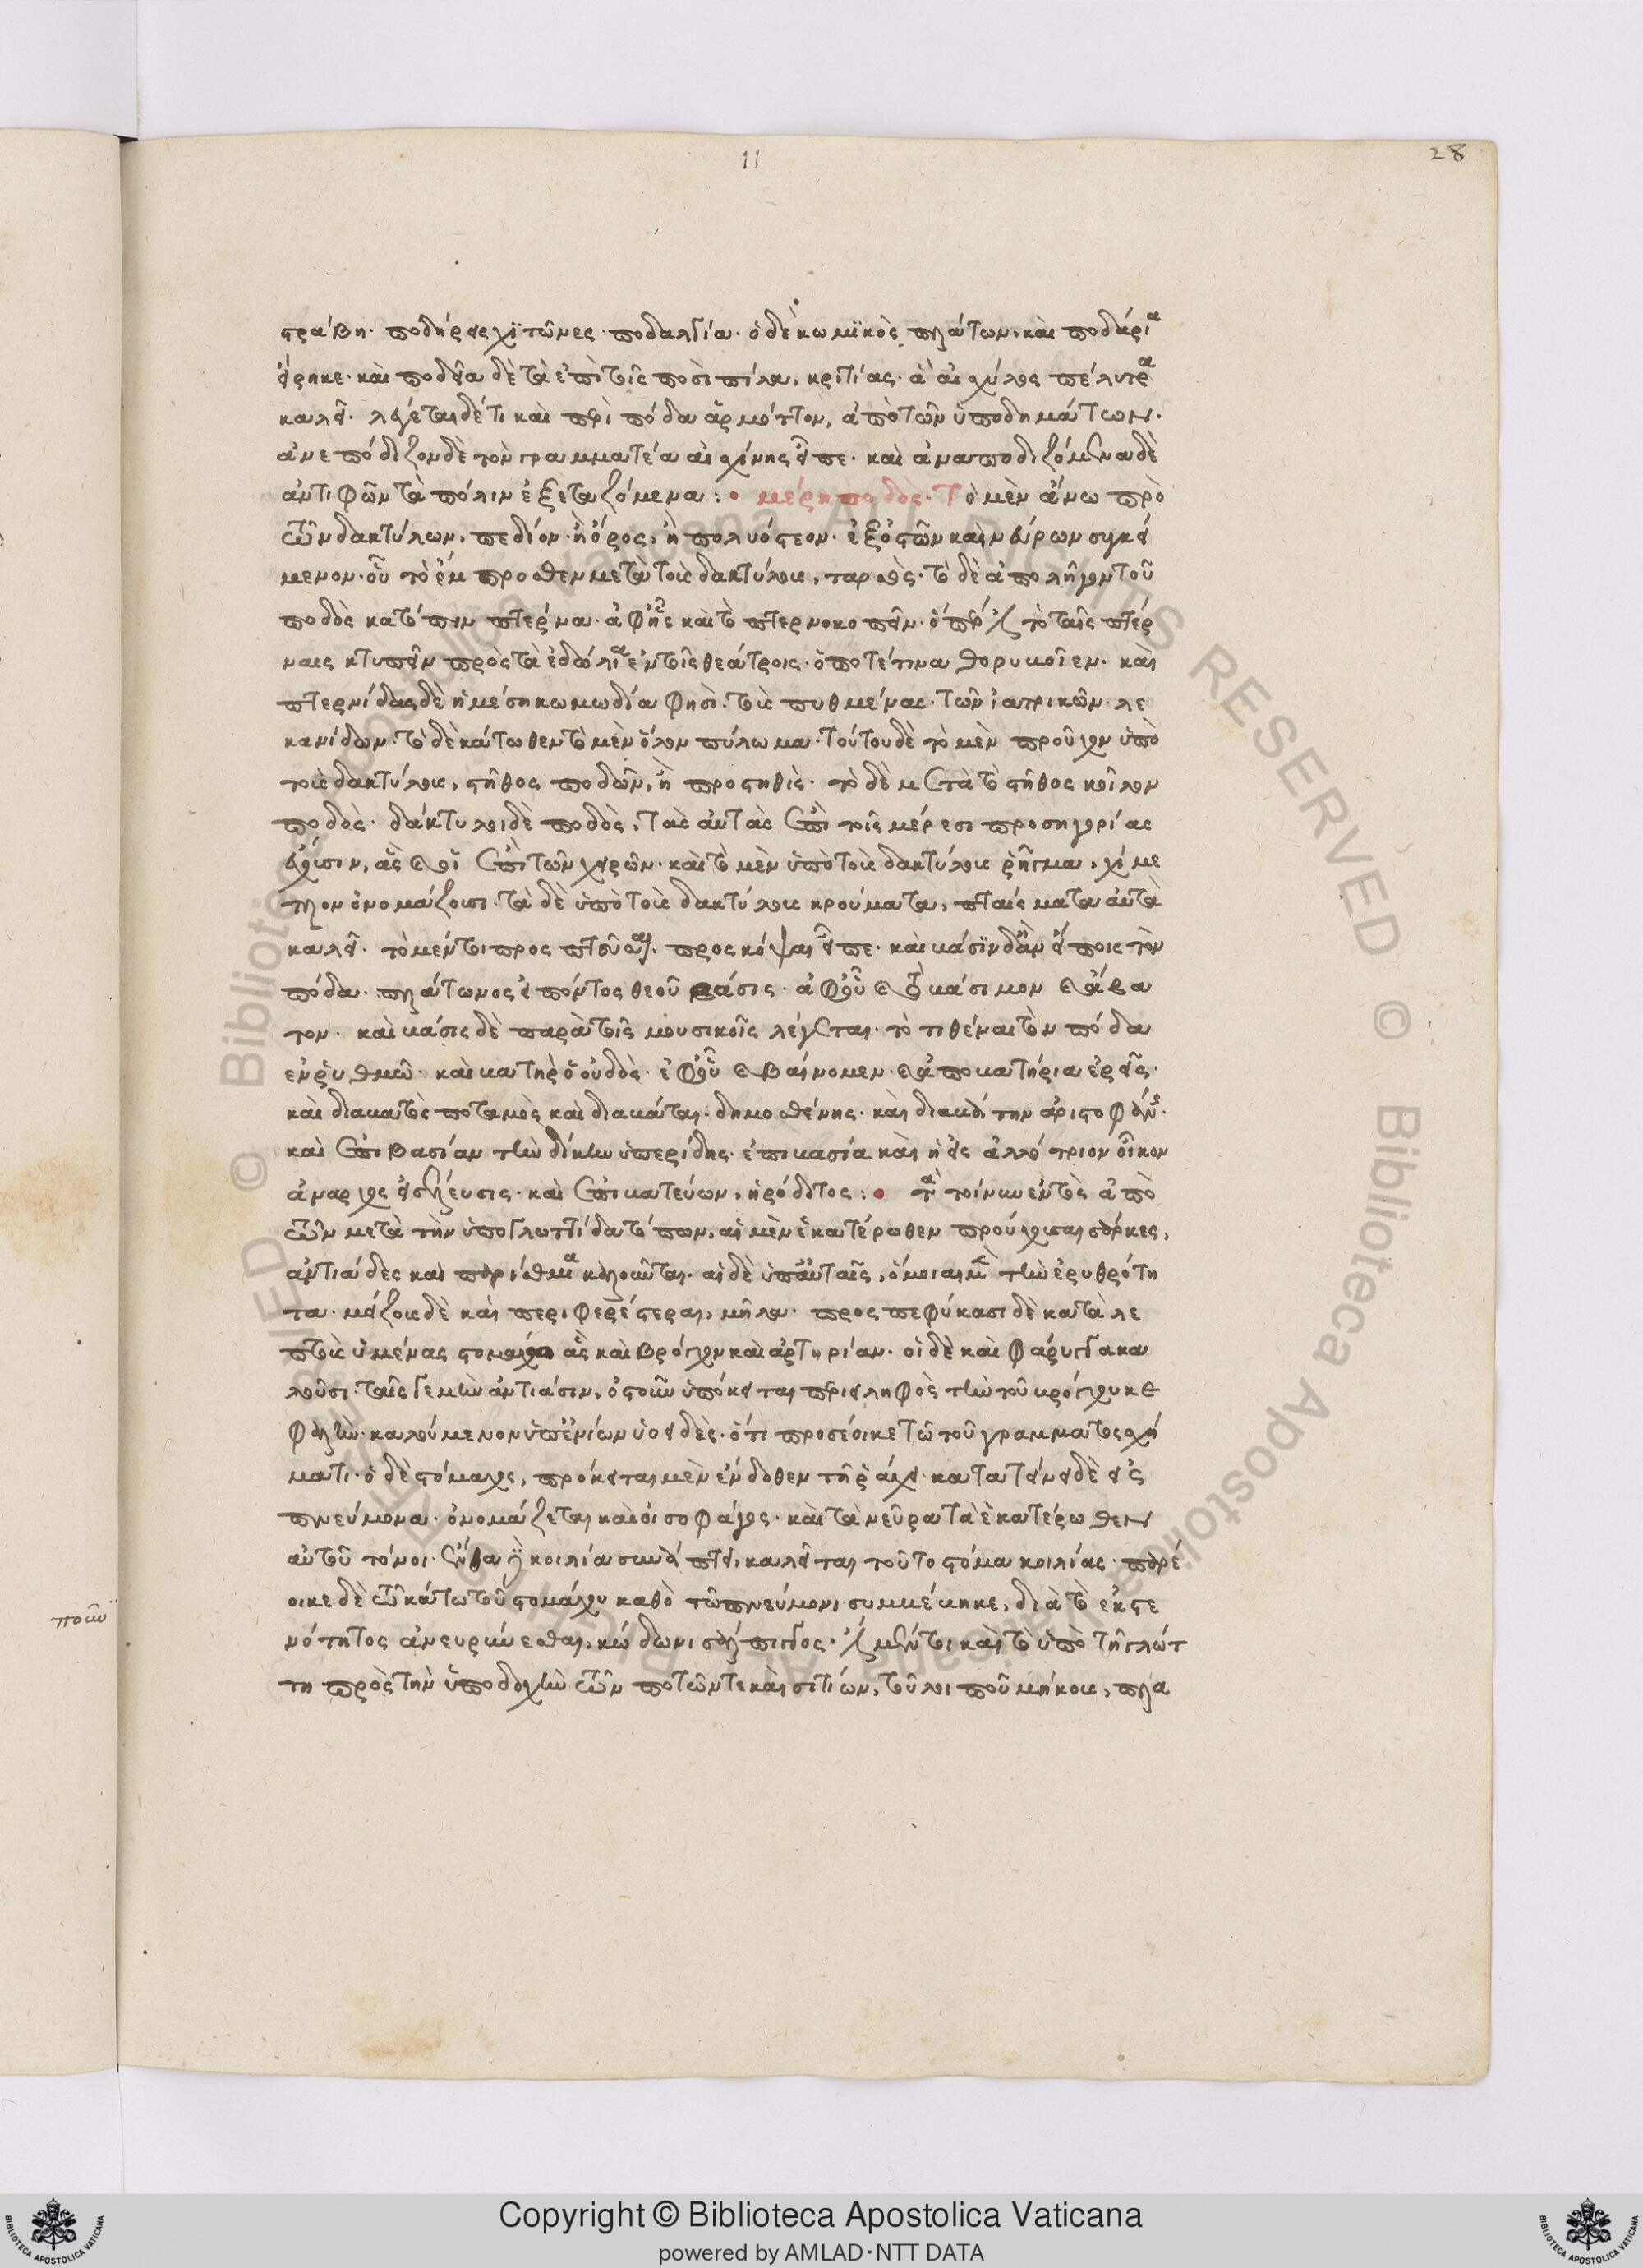 11
28
στράβη. ποδήρεις χϊτῶνες. ποδαλγία. ὁ δὲ κωμϊκὸς πλάτων, καὶ ποδάρια
εἴρηκε. καὶ ποδεῖα δὲ τὰ ἐπὶ τοῖς ποσὶ πίλα, κριτίας. ἃ αἰσχύλος πέλυτρα
καλεῖ. λέγεται δέ τι καὶ περὶ πόδα ἁρμόττον, ἀπὸ τῶν ὑποδημάτων.
ἀνεπόδιζον δὲ τὸν γραμματέα αἰσχίνης εἶπε. καὶ ἀναποδιζόμενα δὲ
ἀντιφῶν τὰ πάλιν ἐξεταζόμενα: μέρη ποδὸς. Τὸ μὲν ἄνω πρὸ
τῶν δακτύλων, πεδίον. ἢ ὄρος, ἢ πολυόστεον. ἐξ ὀστῶν καὶ νεύρων συγκεί
μενον. οὗ τὸ ἔμπροσθεν μετὰ τοὺς δακτύλους, ταρσὸς. τὸ δὲ ἀπολῆγον τοῦ
ποδὸς κατόπιν πτέρνα. ἀφ' ἧς καὶ τὸ πτερνοκοπεῖν. ὅπερ ἐστὶ τὸ ταῖς πτέρ
ναις κτυπεῖν πρὸς τὰ ἑδώλια ἐν τοῖς θεάτροις. ὁπότε τινα θορυβοῖεν. καὶ
πτερνίδας δὲ ἡ μέση κωμωδία φησὶ. τοὺς πυθμένας. τῶν ἰατρικῶν. λε
κανίδων. τὸ δὲ κάτωθεν τὸ μὲν ὅλον πύλωμα. τούτου δὲ τὸ μὲν προῦχον ὑπὸ
τοὺς δακτύλους, στῆθος ποδῶν, ἢ προστηθὶς. τὸ δὲ μετὰ τὸ στῆθος κοῖλον
ποδὸς. δάκτυλοι δὲ ποδὸς, τὰς αὐτὰς ἐπὶ τοῖς μέρεσι προσηγορίας
ἔχουσιν, ἃς καὶ οἱ ἐπὶ τῶν χειρῶν. καὶ τὸ μὲν ὑπὸ τοὺς δακτύλους ῥῆγμα, χίμε
τλον ὀνομάζουσι. τὰ δὲ ὑπὸ τοὺς δακτύλους κρούματα, πταίσματα αὐτὰ
καλεῖ. τὸ μέντοι προσπταῖσαι. προσκόψαι εἶπε. καὶ βάσϊν δ' ἂν εἴποις τὸν
πόδα. πλάτωνος εἰπόντος θεοῦ βάσις. ἀφ' οὗ καὶ τὸ βάσιμον καὶ ἄβα
τον. καὶ βάσις δὲ παρὰ τοῖς μουσικοῖς λέγεται. τὸ τιθέναι τὸν πόδα
ἐν ῥυθμῶ. καὶ βατὴρ ὁ οὐδὸς. ἐφ' οὗ καὶ βαίνομεν. καὶ ἀποβατήρια ἐρεῖς.
καὶ διαβατὸς ποταμὸς καὶ διαβάται. δημοσθένης. καὶ διαβήτην ἀριστοφάνης.
καὶ ἐπιβασίαν τὴν δίκην ὑπερίδης. ἐπιβασία καὶ ἡ εἰς ἀλλότριον οἶκον
ἄναρχος εἰσέλευσις. καὶ ἐπιβατεύων, ἡρόδοτος: τὰ τοίνυν ἐντὸς ἀπὸ
τῶν μετὰ τὴν ὑπογλωττίδα τόπων, αἱ μὲν ἑκατέρωθεν προύχουσαι σάρκες,
ἀντιάδες καὶ παρίσθμια καλοῦνται. αἱ δὲ ὑπ' αὐταῖς, ὅμοιαι μὲν τὴν ἐρυθρότη
τα. μείζους δὲ καὶ περιφερέστεραι, μῆλα. προσπεφύκασι δὲ κατὰ λε
πτοὺς ὑμένας στομάχω ἃς καὶ βρόγχον καὶ ἀρτηρίαν. οἱ δὲ καὶ φάρυγγα κα
λοῦσι. ταῖς γε μὴν ἀντιάσιν, ὀστοῦν ὑπόκειται περιειληφὸς τὴν τοῦ βρόγχου κε
φαλὴν. καλούμενον ὑπ' ἐνίων ὑοειδὲς. ὅτι προσέοικε τῶ τοῦ γράμματος σχή
ματι. ὁ δὲ στόμαχος, πρόκειται μὲν ἔνδοθεν τῆ ῥάχει. κατατείνει δὲ εἰς
πνεύμονα. ὀνομάζεται καὶ οἰσοφάγος. καὶ τὰ νεῦρα τὰ ἑκατέρωθεν
αὐτοῦ τόνοι. ἵνα δὲ κοιλία συνάπτει, καλεῖται τοῦτο στόμα κοιλίας. παρέ
οικε δὲ τῶ κάτω τοῦ στομάχου καθὸ τῶ πνεύμονι συμβέβηκε, διὰ τὸ ἐκ στε
νότητος ἀνευρύνεσθαι, κώδωνι σάλπιγγος. ἔστι μέντοι καὶ τὸ ὑπὸ τῆ γλώτ
τη πρὸς τὴν ὑποδοχὴν τῶν ποτῶν τε καὶ σιτίων, τοῦ λοιποῦ μήκους, πλα
ποιῶν
Copyright © Biblioteca Apostolica Vaticana
powered by AMLAD·NTT DATA